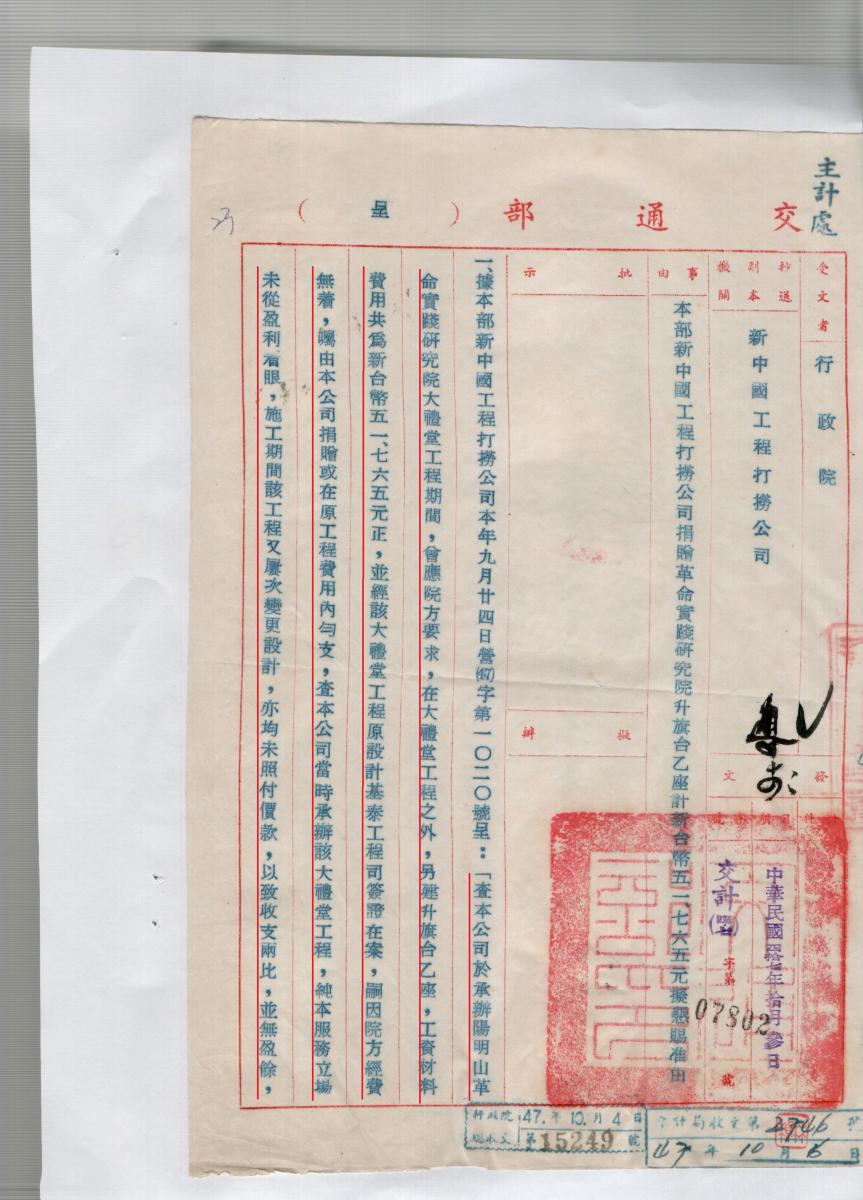 主計處
交通部（呈）
受文者
行政院
抄送副本機關
新中國工程打撈公司
事由
本部新中國工程打撈公司捐贈革命實踐研究院升旗台乙座計新台幣五一七六五元擬懇賜准由
批示
擬辦
發文
中華民國肆拾柒年拾月參日
交計
字第
07802
號
一、據本部新中國工程打撈公司本年九月廿四日營(47)字第一〇二〇號呈：「查本公司於承辦陽明山革
命實踐研究院大禮堂工程期間，曾應院方要求，在大禮堂工程之外，另建升旗台乙座，工資材料
費用共為新台幣五一、七六五元正，並經該大禮堂工程原設計基泰工程司簽證在案，嗣因院方經費
無着，囑由本公司捐贈或在原工程費用內勻支，查本公司當時承辦該大禮堂工程，純本服務立場
未從盈利着眼，施工期間該工程又屢次變更設計，亦均未照付價款，以致收支兩比，並無盈餘，
行政院 47.年10.月4日
總收文 第15249號
主計局收文第2746號
47年10月6日